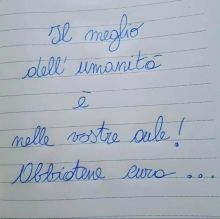 Il meglio
dell' umanità
è
nelle vostre aule!
Abbiatene cura ...